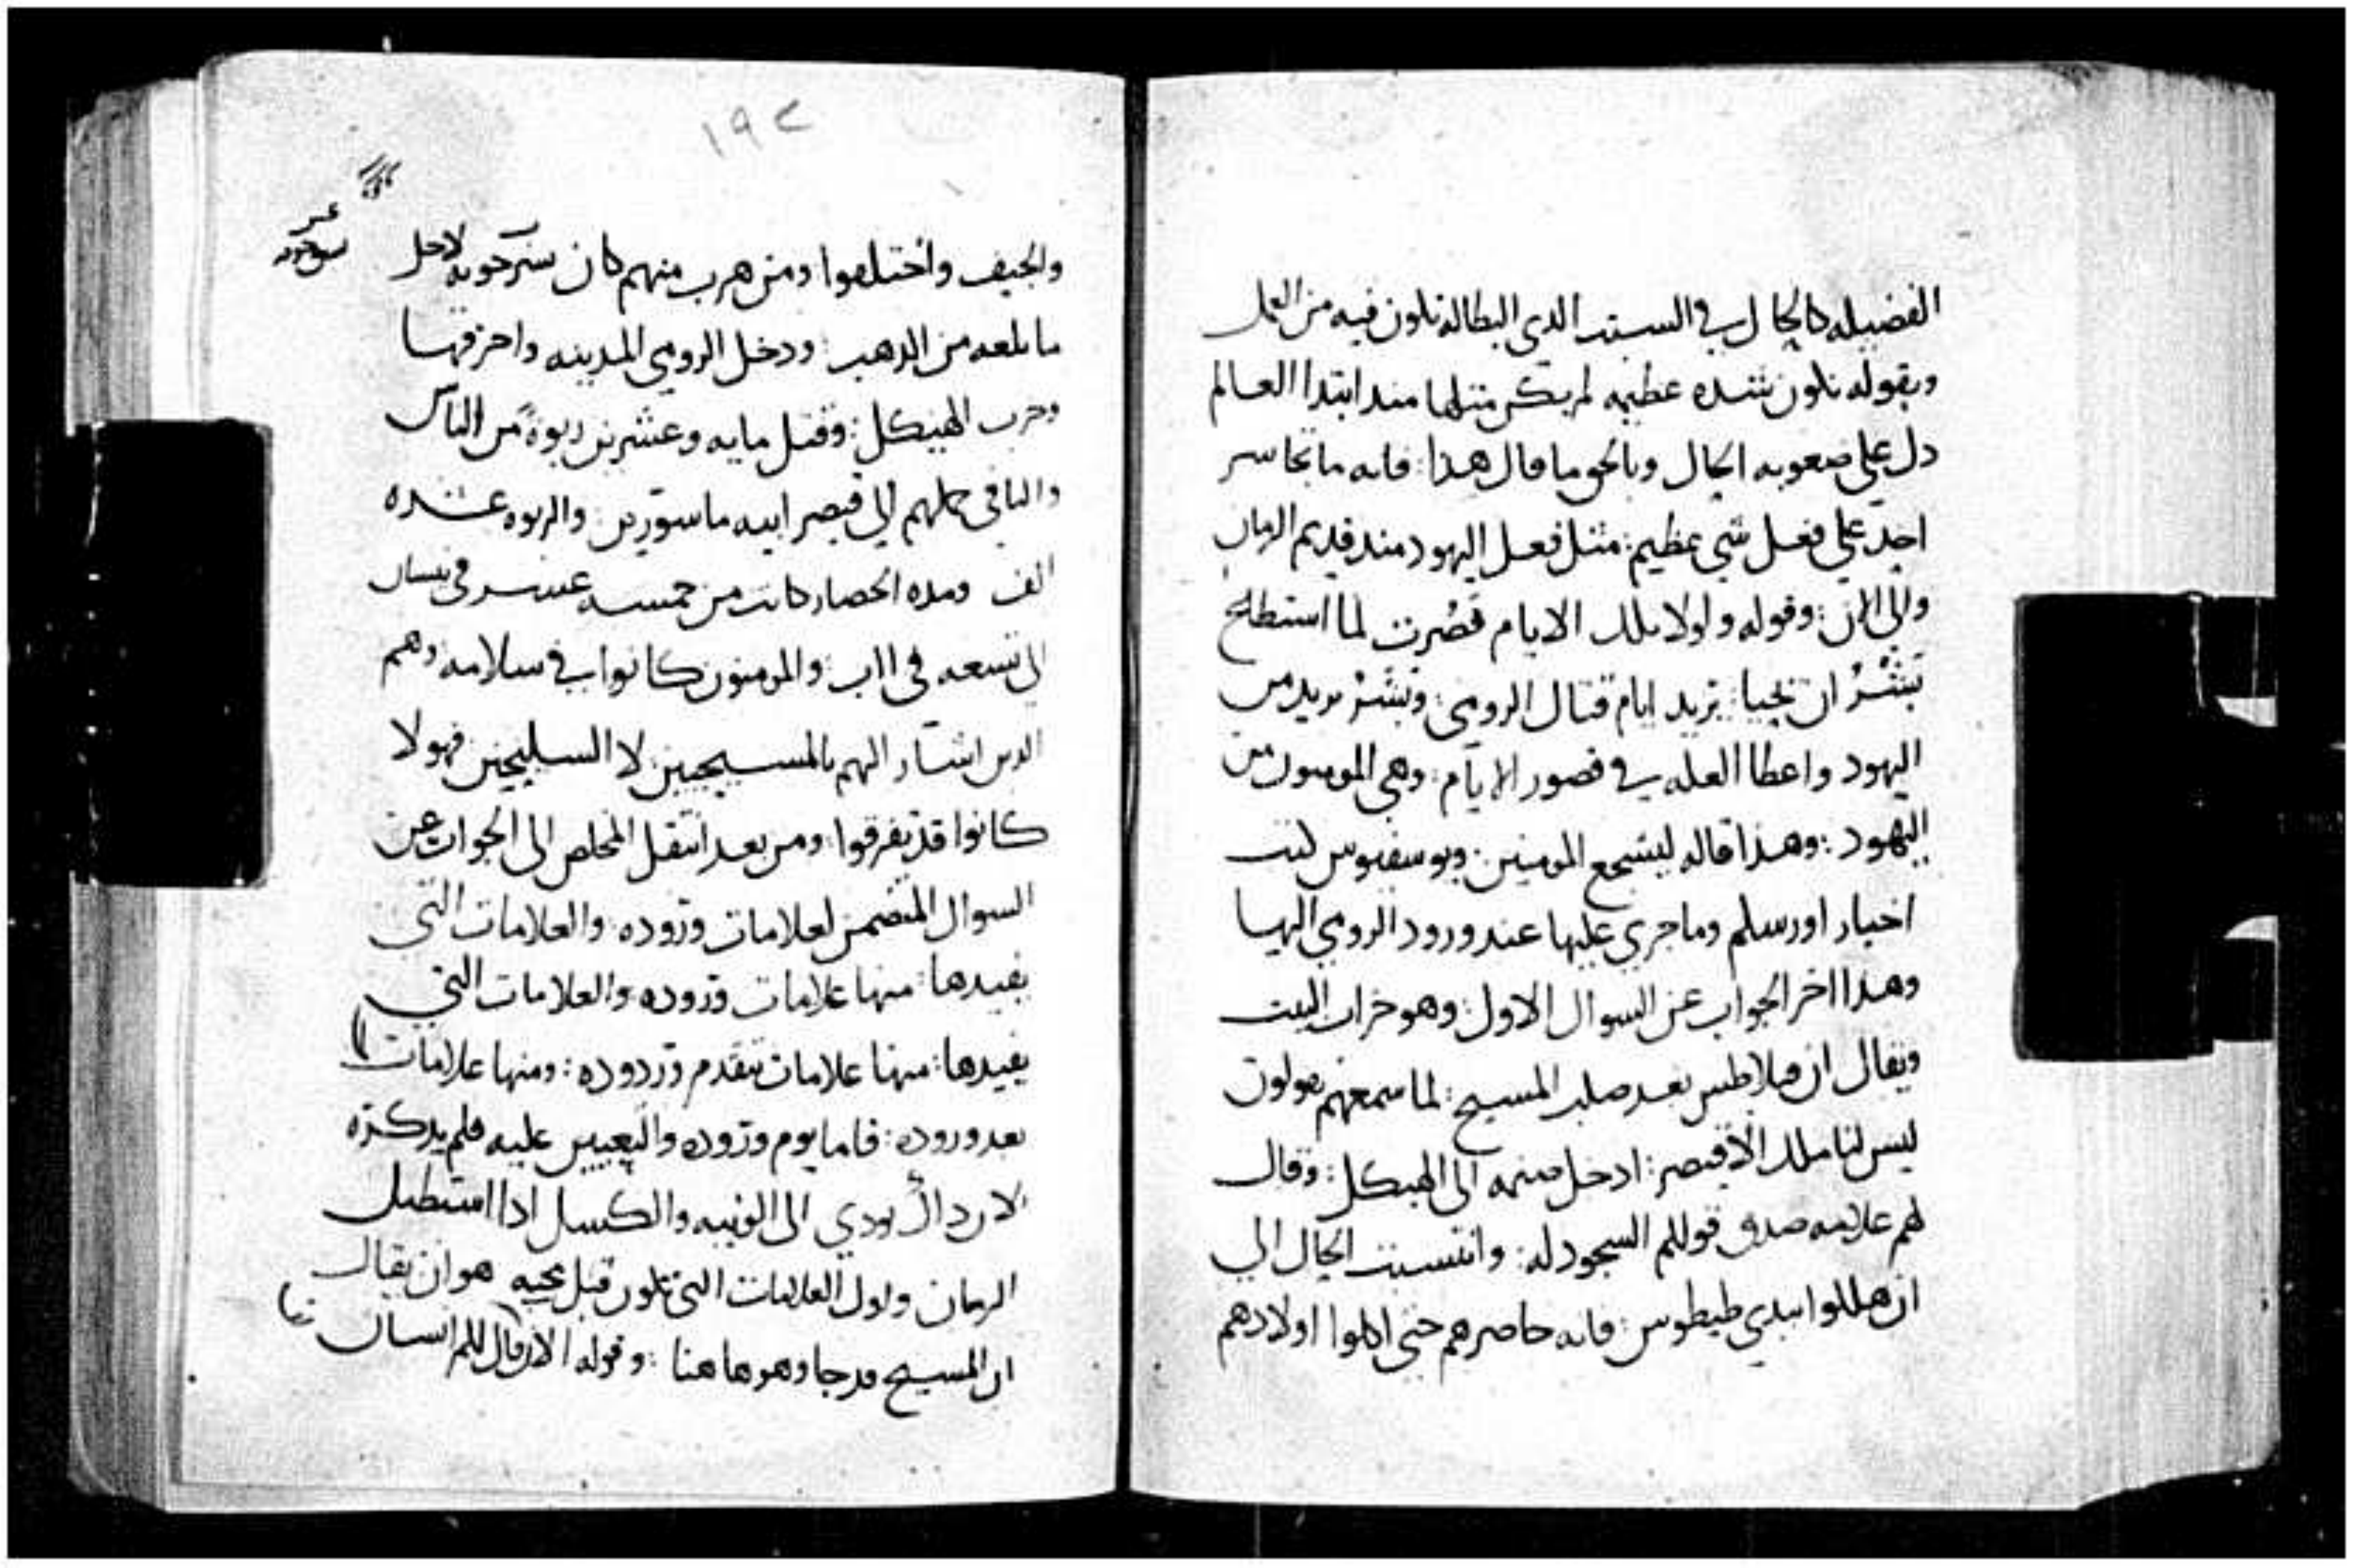 الفضيله كالحال في السبت الذي البطاله تكون فيه من العمل
وبقوله تكون شده عظيمه لم يكن مثلها منذ ابتدا العالم
دل علي صعوبه الحال وبالحق ما قال هذا: فانه ما تجاسر
احد علي فعل شي عظيم: مثل فعل اليهود منذ قديم الزمان
والي الان: وقوله ولولا تلك الايام قصُرت لما استطاع
بَشَرُ ان يحيا: يريد ايام قتال الرومي: وبشَرْ يريد من
اليهود واعطا العله في قصور الايام: وهي المومنون من
اليهود: وهذا قاله ليشجع المومنين: ويوسفيوس كتب
اخبار اورسلم وما جري عليها عند ورود الرومي اليها
وهذا اخر الجواب عن السوال الاول: وهو خراب البيت
ويقال ان فيلاطس بعد صلب المسيح: لما سمعهم يقولون
ليس لنا ملك الا قيصر: ادخل صنمه الي الهيكل: وقال
لهم علامه صدق قولكم السجود له: وانتسبت الحال الي
ان هلكوا بيدي طيطوس: فانه حاصرهم حتي اكلوا اولادهم
١٩٢
والجيف واختلفوا ومن هرب منهم كان يشرحونه لاجل
ما بلعه من الذهب: ودخل الرومي المدينه واحرقها
وخرب الهيكل: وقتل مايه وعشرين ربوة من الناس
والباقي حملهم الي قيصر ابيه ماسورين: والربوه عشره
الف ومده الحصار كانت من خمسه عشر في نيسان
الي تسعه في ااب: والمومنون كانوا في سلامه وهم
الذين اشار اليهم بالمسيحيين لا السليحين فهولا
كانوا قد تفرقوا: ومن بعد انتقل المخلص الي الجواب عن
السوال المتضمن لعلامات وروده: والعلامات التي
يفيدها: منها علامات وروده والعلامات التي
يفيدها: منها علامات تتقدم وردوده: ومنها علامات
بعد وروده: فاما يوم وروده والتعيين عليه فلم يذكره
لان ذاك يودي الي الونيه والكسل اذا استطيل
الزمان واول العلامات التي تكون قبل مجيه هو ان يقال
ان المسيح قد جا وهو ها هنا: وقوله الان قال لكم انسان